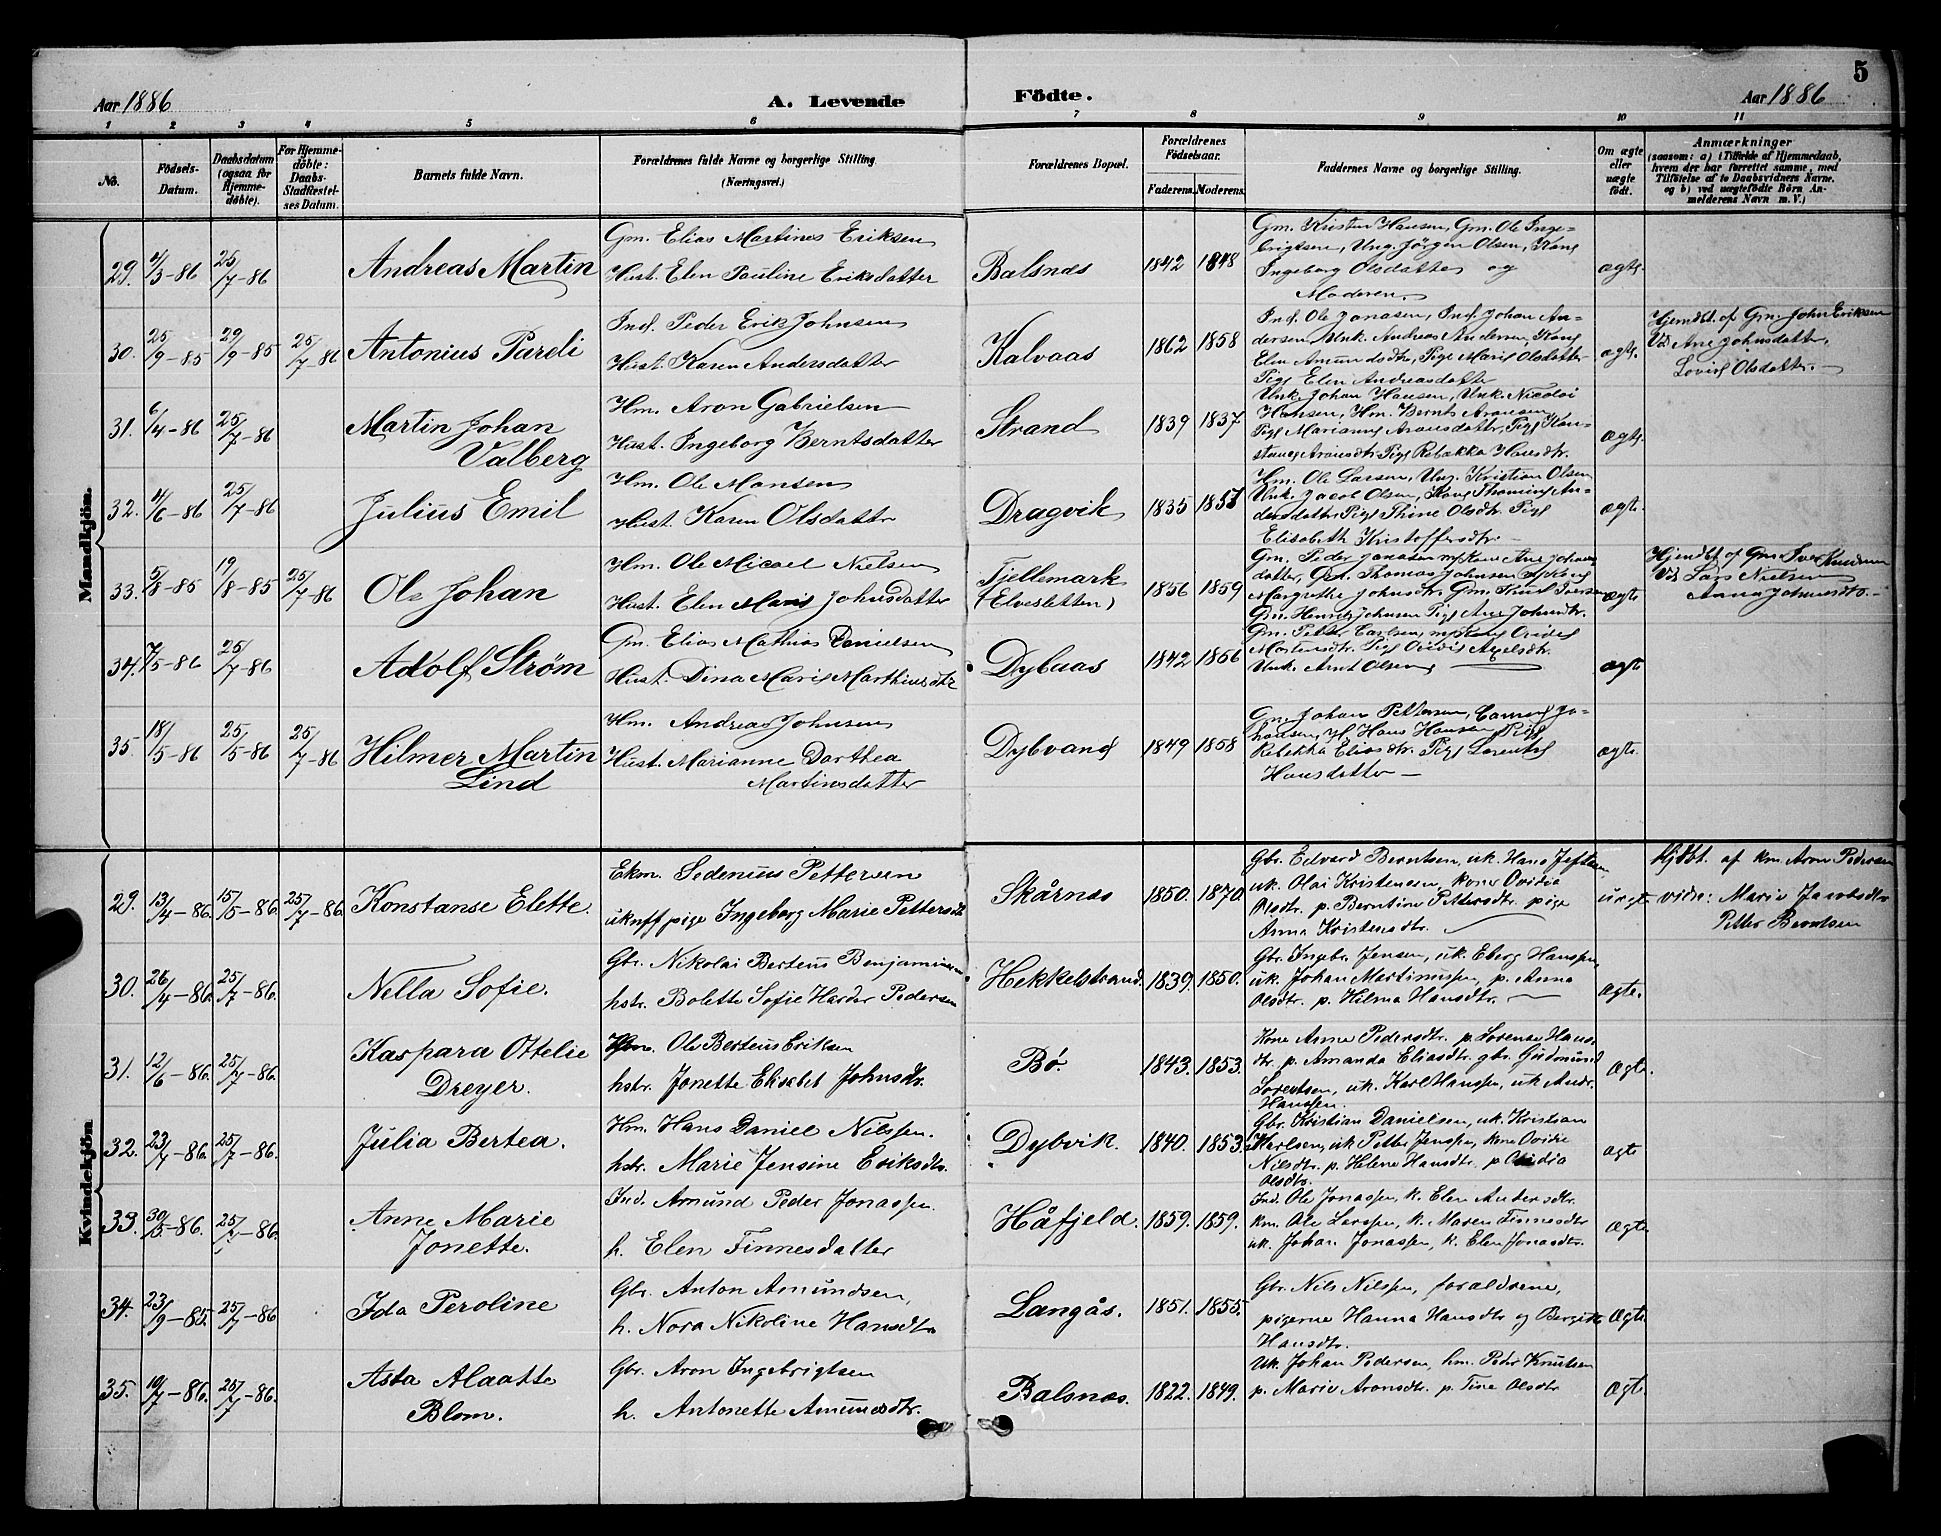 Aar 1886
A. Levende
Födte.
Aar 1886
5
1 2 3 4 5 6 7 8 9 10 11
No.
Födsels-
Datum.
Daabsdatum
(ogsaa for
Hjemme-
döbte).
For Hjemme-
döbte:
Daabs-
Stadfæstel-
ses Datum.
Barnets fulde Navn.
Forældrenes fulde Navne og borgerlige Stilling.
(Næringsvei.)
Forældrenes Bopæl.
Forældrenes
Födselsaar.
Faderens. Moderens.
Faddernes Navne og borgerlige Stilling.
Om ægte
eller
uægte
födt.
Anmærkninger
(saasom: a) i Tilfælde af Hjemmedaab,
hvem der har forrettet samme, med
Tilföielse af to Daabsvidners Navne.
og b) ved uægtefödte Börn An-
melderens Navn m.V.)
Mandkjön.
29. 4/3-86 25/7-86
Andreas Martin
Gm. Elias Martines Eriksen
Hust. Elen Pauline Eriksdatter
Balsnæs
1842 1848
Gm. Kristen Hansen, Gm. Ole Inge-
brigtsen, Ung. Jörgen Olsen, Kone
Ingeborg Olsdatter og
Moderen.
ægte.
30. 25/9-85 29/9-85 25/7-86
Antonius Pareli
Ind. Peder Erik Johnsen
Hust. Karen Andersdatter
Kalvaas
1862 1858
Ind. Ole Jonasen, Ind. Johan An-
dersen, Unk. Andreas Andersen, Kone
Elen Amundsdtr, Pige Marie Olsdatter
Pige Elen Andreasdatter
ægte.
Hjemdbt af Gm. John Eriksen
Vd. Ane Johnsdatter,
Lovise Olsdatter.
31. 6/4-86 25/7-86
Martin Johan
Valberg
Hm. Aron Gabrielsen
Hust. Ingeborg Berntsdatter
Strand
1839 1837
Unk. Johan Hansen, Unk. Nicolai
Hansen, Hm. Bernt Aronsen
Pige Marianne Aronsdatter, Pige Kon-
stanse Aronsdtr. Pige Rebekka Hansdtr.
ægte.
32. 4/6-86 25/7-86
Julius Emil
Hm. Ole Monsen
Hust. Karen Olsdatter
Dragvik
1835 1857
Hm. Ole Larsen, Ung. Kristian Olsen
Unk. Jacob Olsen, Kone Thomine An-
dersdatter, Pige Thine Olsdtr. Pige
Elisabeth Kristoffersdtr.
ægte.
33. 5/8-85 19/8-85 25/7-86
Ole Johan
Hm. Ole Micael Nielsen
Hust. Elen Marie Johnsdatter
Fjellemark
(Elvesletten)
1856 1859
Gm. Peder Jonasen m/ Kone Ane Johns
datter, Gm. Thomas Johnsen m/ Kone
Margrethe Johnsdtr. Gm. Iversen
Gm. Henrik Johnsen Pige Ane Johnsdtr.
ægte
Hjemdbt af Gm. Iver Knudsen
Vd. Lars Nielsen
Anna Johnsdtr.
34. 7/5-86 25/7-86
Adolf Ström
Gm. Elias Mathias Danielsen
Hust. Dina Marie Marthinsdtr
Dybvaas
1842 1856
Gm. Petter Carlsen, m/ Kone Ovidie
Mortensdtr. Pige Axelsdtr.
Unk. Arnt Olsen
ægte
35 18/5-86 25/5-86 25/7-86
Hilmer Martin
Lind
Hm. Andreas Johnsen
Hust. Marianne Dorthea
Martinsdatter
Dybvand
1849 1858
Gm. Johan Pettersen, Jo-
hansen, Hans Hansen Pige
Rebekka Eliasdtr. Pige Lorentse
Hansdatter
ægte.
Kvindekjön
29. 13/4-86. 15/5-86. 25/7-86.
Konstanse Elette.
Ekm. Sedenius Pettersen
uknff pige Ingeborg Marie Pettersdtr
Skårnæs
1850. 1870.
Gbr. Edvard Berntsen, uk. Hans Jeftsen
uk. Olai Kristensen, kone Ovidia
Olsdtr. p. Berntine Pettersdtr. pige
Anna Kristensdtr.
uægt.
Hjdbt. af km. Aron Pedersen
vidn: Marie Jacobsdtr
Petter Berntsen
30. 26/4-86. 25/7-86.
Nella Sofie.
Gbr. Nikolai Berteus Benjaminsen
hstr. Bolette Sofie Harder Pedersen
Hekkelstrand.
1839. 1850.
Gbr. Ingebr. Jensen, uk. Eberg Hanssen,
uk. Johan Martinussen, p. Anna
Olsdtr. p. Hilma Hansdtr.
Ægte.
31. 12/6-86. 25/7-86.
Kaspara Ottelie
Dreyer.
Hm. Ole Berteus Eriksen
hstr. Jonette Elisabet Johnsdtr.
Bø.
1843. 1853.
Kone Anne Pedersdtr. p. Lorense Hans-
dtr. p. Amanda Eliasdtr. gbr. Gudmund
Lorentsen, uk. Karl Hanssen, uk Andr.
Hanssen.
Ægte.
32. 23/4-86. 25/7-86.
Julia Bertea.
Hm. Hans Daniel Nilssen.
hstr. Marie Jensine Eriksdtr.
Dybvik.
1840. 1853.
Gbr. Kristian Danielsen, uk. Kristian
Karlsen, uk Petter Jenssen, kone Ovidie
Nilsdtr. p. Helene Hansdtr. p. Ovidia
Olsdtr.
ægte
33. 30/5-86. 25/7-86.
Anne Marie
Jonette.
Ind. Amund Peder Jonassen.
h. Elen Finnesdatter
Håfjeld.
1859. 1859.
Ind. Ole Jonassen, k. Elen Andersdtr.
km. Ole Larssen, k. Maren Finnesdtr
uk. Johan Jonassen, k. Elen Jonasdtr.
Ægte.
34. 23/9-85. 25/7-86
Ida Peroline
Gbr. Anton Amundsen,
h. Nora Nikoline Hansdtr
Langås.
1851. 1855.
Gbr. Nils Nilssen, forældrene,
pigerne Hanna Hansdtr og Bergite
Hansdtr.
Ægte.
35. 19/7-86. 25/7-86.
Asta Alaatte
Blom.
Gbr. Aron Ingebrigtsen
h. Antonette Amundsdtr.
Balsnæs.
1822. 1849.
Uk. Johan Pedersen, hm. Peder Knutsen
p. Marie Aronsdtr. p. Tine Olsdtr
Ægte